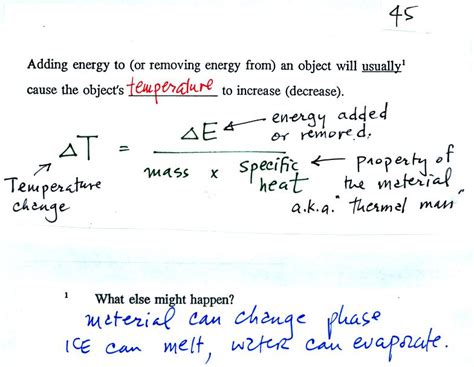 45
Adding energy to (or removing energy from) an object will usually¹
cause the object's temperature to increase (decrease).
ΔT = ΔE ← energy added
or removed.
mass x specific heat ← property of
the material
a.k.a. "thermal mass"
Temperature
change
¹ What else might happen?
material can change phase
ICE can melt, water can evaporate.